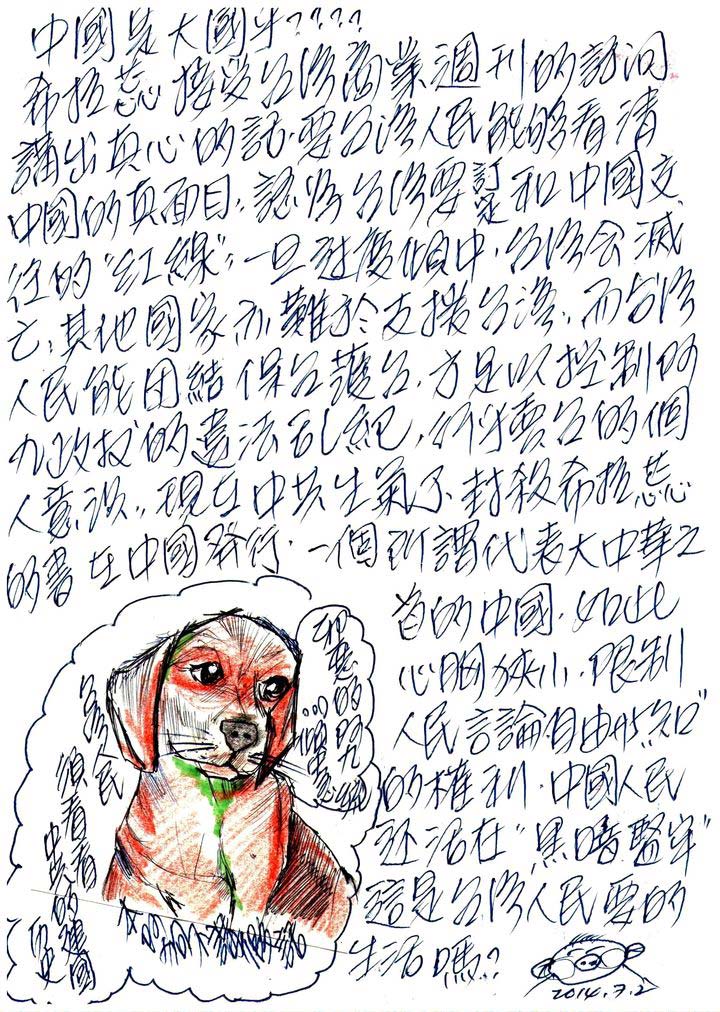 中國是大國乎????
希拉蕊接受台灣商業週刊的訪問
講出真心的話.要台灣人民能夠看清
中國的真面目.認為台灣要訂定和中國交
往的"紅線",一旦過度傾中.台灣会滅
亡.其他國家亦難於支援台灣.而台灣
人民能团結保台護台.方足以控制的
九政权的違法乱紀,行出賣台的個
人意識..現在中共生氣了.封殺希拉蕊
的書在中國發行.一個所謂代表大中華之
首的中國.如此
心胸狹小.限制
人民言論自由及"知"
的權利.中國人民
还活在"黑暗監牢"
這是台灣人民要的
生活嗎??
台灣人民
很看看
中共的建國
歷史
邪惡的
2014.7.2